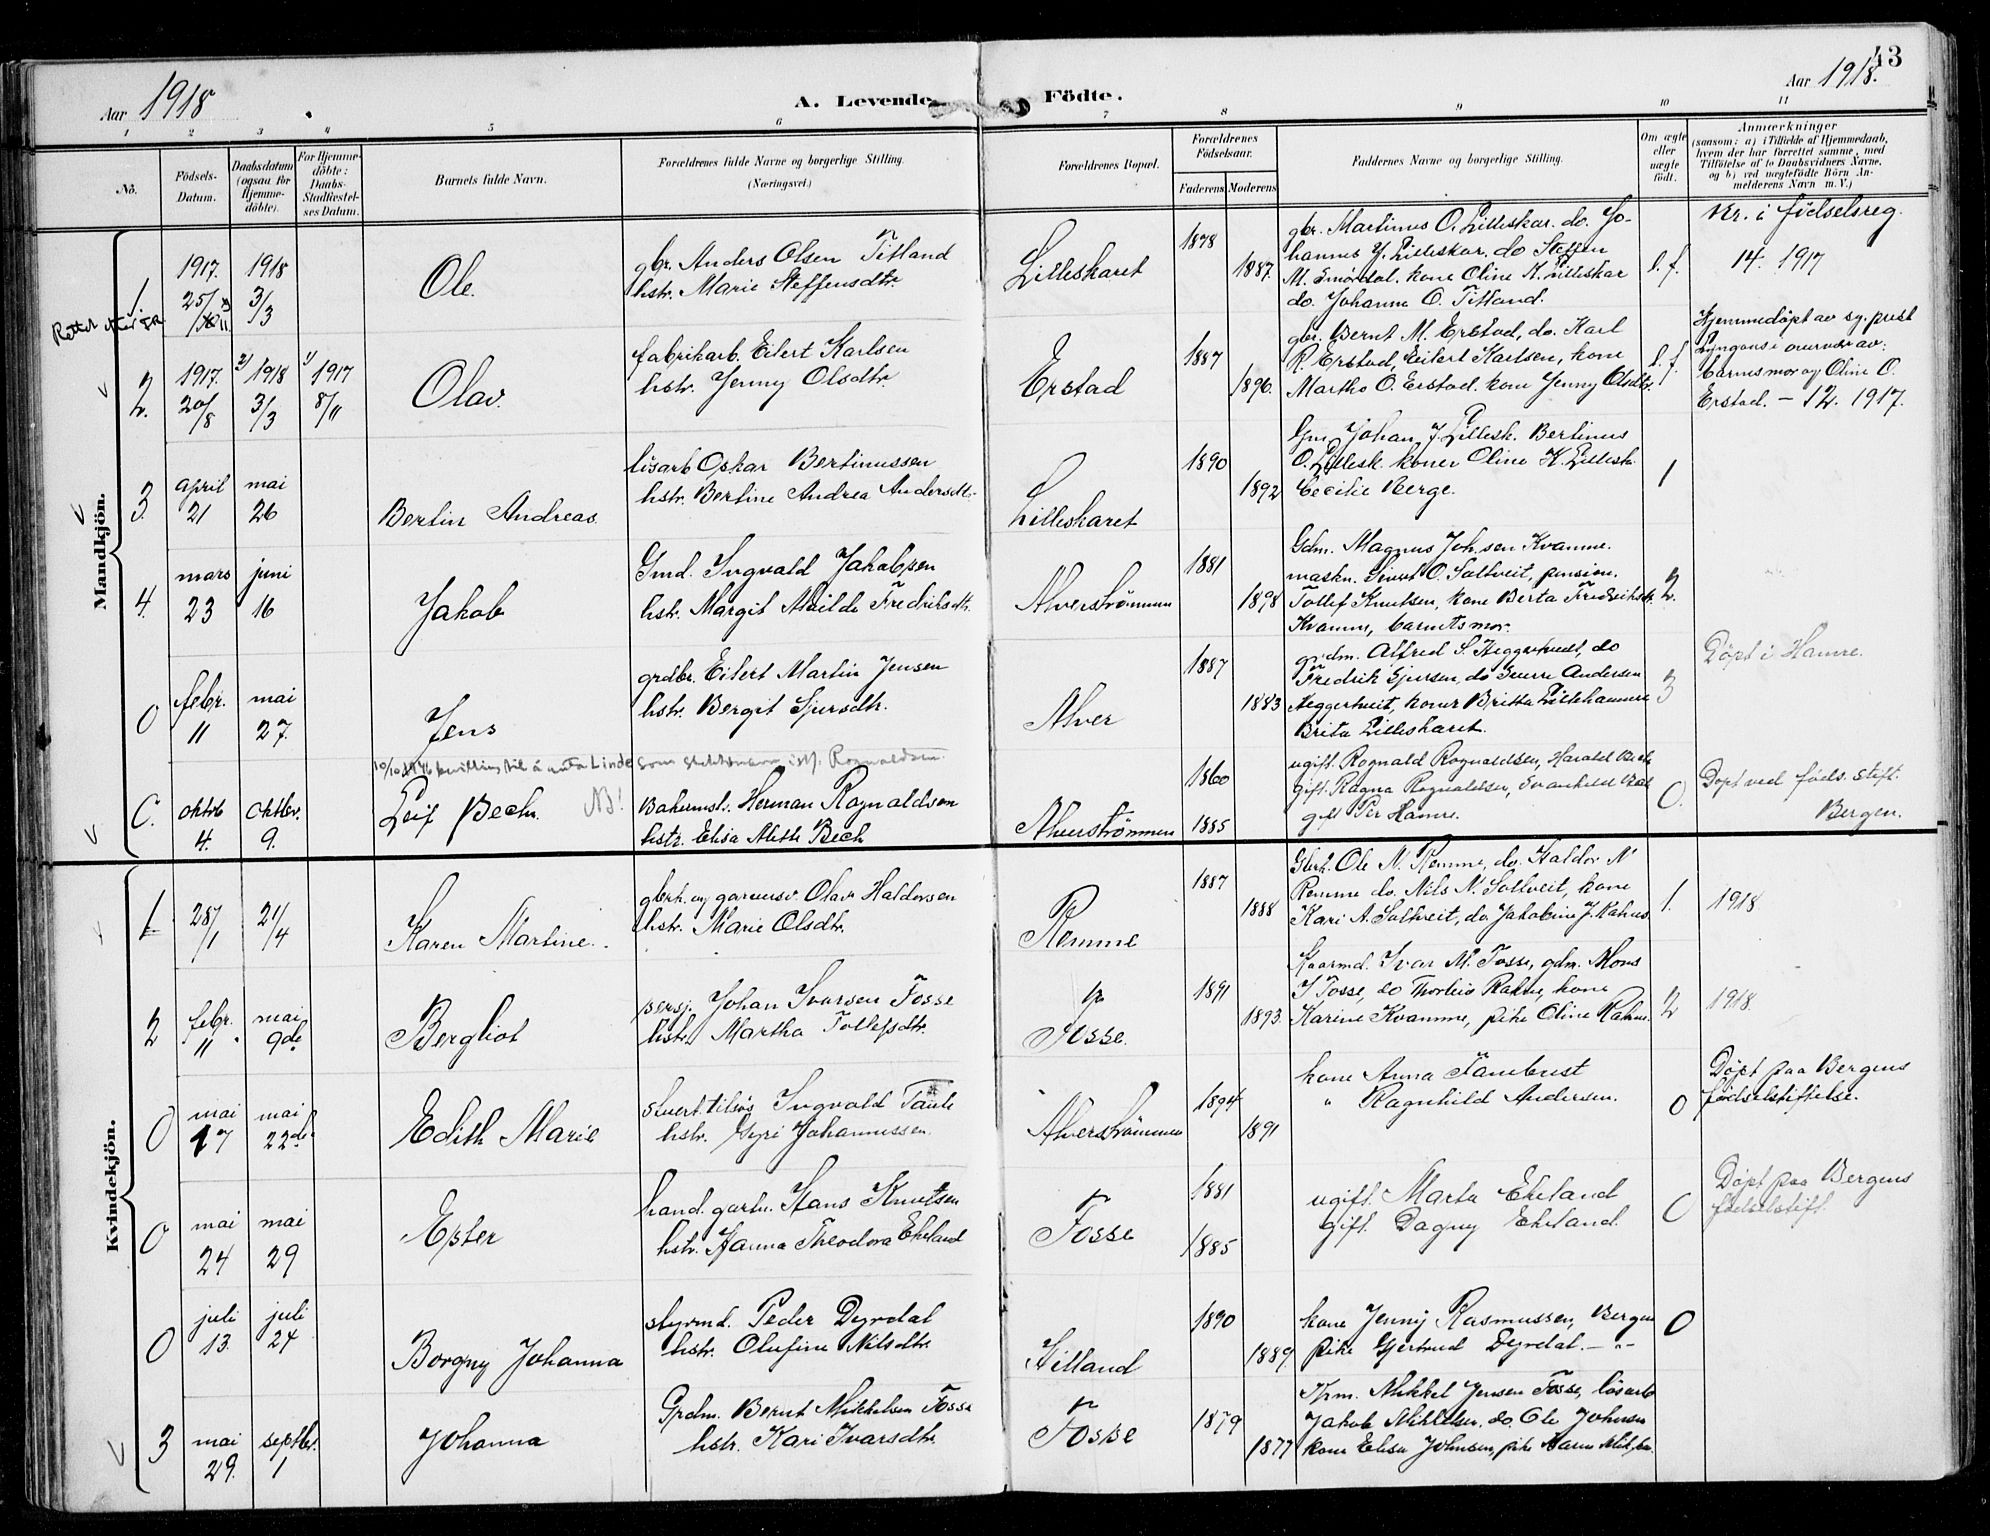 43
Aar 1918
A. Levende Födte.
Aar 1918.
1 2 3 4 5 6 7 8 9 10 11
No.
Födsels-Datum.
Daabsdatum (ogsaa for Hjemme-döbte).
For Hjemme-döbte: Daabs-Stadfæstel-ses Datum.
Barnets fulde Navn.
Forældrenes fulde Navne og borgerlige Stilling. (Næringsvei.)
Forældrenes Bopæl.
Forældrenes Födselsaar.
Faderens Moderens
Faddernes Navne og borgerlige Stilling.
Om ægte eller uægte födt.
Anmærkninger
(saasom: a) i Tilfælde af Hjemmedaab,
hvem der har forrettet samme, med
Tilföielse af to Daabsvidners Navne,
og b) ved uægtefödte Börn An-
melderens Navn m. V.)
Mandkjön.
1. 1917. 25/ 1918 3/3
Ole.
gbr. Anders Olsen Titland
hstr. Marie Steffensdtr.
Lilleskaret
1878
1887.
gbr. Martinus O. Lilleskar. do. Jo-
hannes J. Lilleskar, do Steffen
M. Smørdal. kone Oline K. Lilleskar
do. Johanne O. Titland.
Nr. i fødselsreg.
14. 1917
2. 1917. 20/8 2/ 1918 3/3 1/ 1917 8/11
Olav.
fabrikarb. Eilert Karlsen
hstr. Jenny Olsdtr.
Erstad
1887
1896.
gbr. Bernt M. Erstad, do. Karl
R. Erstad, Eilert Karlsen, kone
Martha O. Erstad. kone Jenny Olsdtr.
Hjemmedøpt av sg. prest
overvær av:
barnes mor og Oline O.
Erstad. – 12. 1917.
3. april 21 mai 26
Bertin Andreas.
løsarb Oskar Bertinussen
hstr. Bertine Andrea Andersdtr.
Lilleskaret
1890
1892
Gm. Johan J. Lillesk. Bertinus
O. Lillesk. koner Oline K. Lillesk.
Cecilie Berge.
1
4. mars 23 juni 16
Jakob
Gmd. Ingvald Jakobsen
hstr. Margit Alvilde Fredriksdtr.
Alverstrømmen
1881
1898
Gdm. Magnus Joh.sen Kvamme.
maskn. Sivert O. Soltveit, pension.
Tollef Knutsen, kone Berta Fredriksdtr.
Kvamme, barnets mor.
2.
0 febr. 11 mai 27.
Jens
grdbr. Eilert Martin Jensen
hstr. Bergit Sjursdtr.
Alver
1887
1883
grdm. Alfred S. Heggernveit, do
Fredrik Sjursen, do Sverre Andersen
Heggertveit, koner Britta Lillehammer
Brita Lilleskaret.
3
Döpt i Hamre.
10/10 1946 bevilling til å anta Linde som slektsnavn istf. Rognaldsen.
0. oktob 4. oktbr. 9.
Leif Bech. NB!
Bakermst. Herman Rognaldsen
hstr. Elisa Alette Bech
Alverstrømmen
1860
1885
ugift. Rognald Rognaldsen, Harald Bech
gift. Ragna Rognaldsen,
gift Per Hamre.
0.
Döpt ved föds. stift.
Bergen.
Kvindekjön.
1 28/1 21/4
Karen Martine.
gbrh. og garversv. Olav Haldorsen
hstr. Marie Olsdtr.
Remme
1887
1888
Gbrh. Ole N. Remme, do. Haldor N
Remme do. Nils N. Soltveit, kone
Kari A. Soltveit, do. Jakobine J. Raknes
1.
1918
2 febr. 11 mai 9de
Bergliot
persj. Johan Ivarsen Fosse
hstr. Martha Tollefsdtr.
Fosse.
1891
1893.
Kaarmd. Ivar M. Fosse, gdm. Mons
I Fosse, do Thorleiv Rakne, kone
Karine Kvamme, pike Oline Rakne.
2
1918
0 mai 17 mai 22de
Edith Marie
Ingvald Taule
hstr. Gyri Johannessen.
Alverstrømmen
1894
1891
kone Anna Tambrest
" Ragnhild Andersen.
0
Döpt paa Bergens
fødselstiftelse.
0 mai 24 mai 29
Ester
hand. gartn. Hans Knutsen
hstr. Hanna Theodora Ekeland
Fosse
1881
1885
ugift. Marta Ekeland
gift. Dagny Ekeland.
0
Döpt paa Bergens
fødselstift.
0 juli 13. juli 24
Borgny Johanna
styrmd. Peder Dyrdal
hstr. Olufine Nilsdtr.
Hilland
1890
1889.
kone Jenny Rasmussen, Bergen
pike Gjertrud Dyrdal. – " –
0
3 mai 29. septbr. 1
Johanna
Grdm. Bernt Mikkelsen Fosse
hstr. Kari Ivarsdtr.
Fosse
1879
1877
Krm. Mikkel Jensen Fosse, løsarb
Jakob Mikkelsen, do. Ole Johnsen
kone Elisa Johnsen, pike Maren